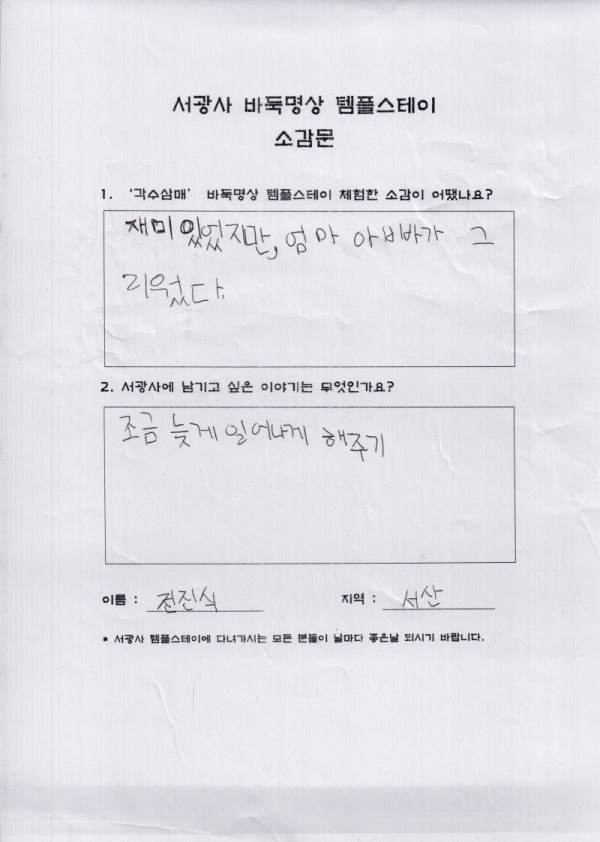 서광사 바둑명상 템플스테이
소감문
1. '각수삼매' 바둑명상 템플스테이 체험한 소감이 어땠나요?
재미있었지만, 엄마 아빠가 그
리웠다.
2. 서광사에 남기고 싶은 이야기는 무엇인가요?
조금 늦게 일어나게 해주기
이름 : 전진식
지역 : 서산
* 서광사 템플스테이에 다녀가시는 모든 분들이 날마다 좋은날 되시기 바랍니다.